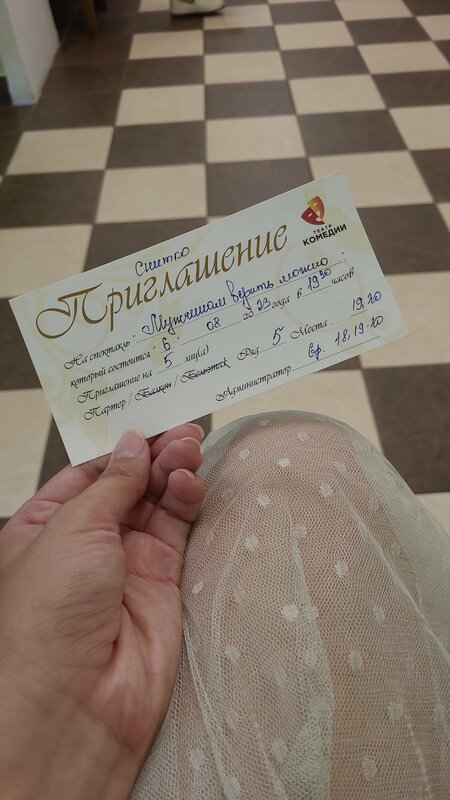 ТЕАТР
КОМЕДИИ
Снитко
Приглашение
На спектакль "Мужчинам верить можно"
который состоится 6 08 2023 года в 19 30 часов
Приглашение на 5 лиц(а)
Партер / Балкон / Бельэтаж Ряд 5 Места 19,20
Администратор 6р. 18,19-20